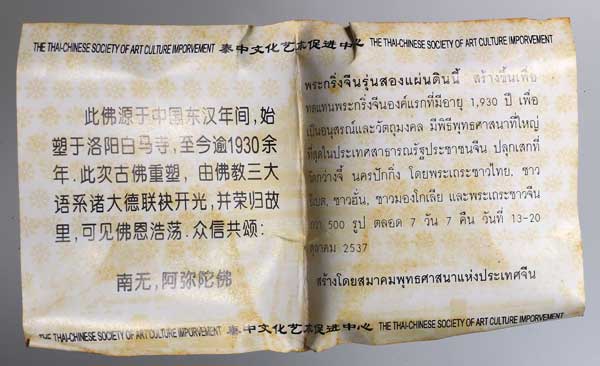 THE THAI-CHINESE SOCIETY OF ART CULTURE IMPORVEMENT 泰中文化艺术促进中心 THE THAI-CHINESE SOCIETY OF ART CULTURE IMPORVEMENT
此佛源于中国东汉年间,始
塑于洛阳白马寺,至今逾1930余
年.此次古佛重塑,由佛教三大
语系诸大德联袂开光,并荣归故
里,可见佛恩浩荡.众信共颂:
南无,阿弥陀佛
พระกริ่งจีนรุ่นสองแผ่นดินนี้ สร้างขึ้นเพื่อ
ทดแทนพระกริ่งจีนองค์แรกที่มีอายุ 1,930 ปี เพื่อ
เป็นอนุสรณ์และวัตถุมงคล มีพิธีพุทธศาสนาที่ใหญ่
ที่สุดในประเทศสาธารณรัฐประชาชนจีน ปลุกเสกที่
วัดกว่างจี้ นครปักกิ่ง โดยพระเถระชาวไทย, ชาว
ธิเบต, ชาวฮั่น, ชาวมองโกเลีย และพระเถระชาวจีน
กว่า 500 รูป ตลอด 7 วัน 7 คืน วันที่ 13-20
ตุลาคม 2537
สร้างโดยสมาคมพุทธศาสนาแห่งประเทศจีน
THE THAI-CHINESE SOCIETY OF ART CULTURE IMPORVEMENT 泰中文化艺术促进中心 THE THAI-CHINESE SOCIETY OF ART CULTURE IMPORVEMENT